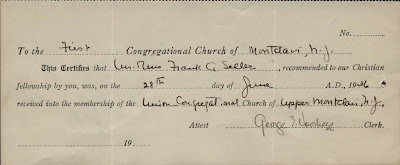 No.
To the First Congregational Church of Montclair, N.J.
This Certifies that Frank G. Seller, recommended to our Christian
fellowship by you, was, on the 28th day of June A.D., 1926
received into the membership of the Union Congregational Church of Upper Montclair N.J.
Attest George Clerk.
19